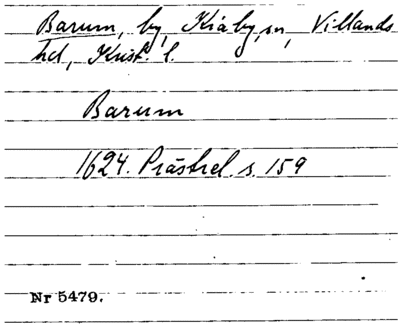 Barum, by, Kiaby sn, Villands
hd, Krist. l.
Barum
1624. Prästrel. s. 159
Nr 5479.